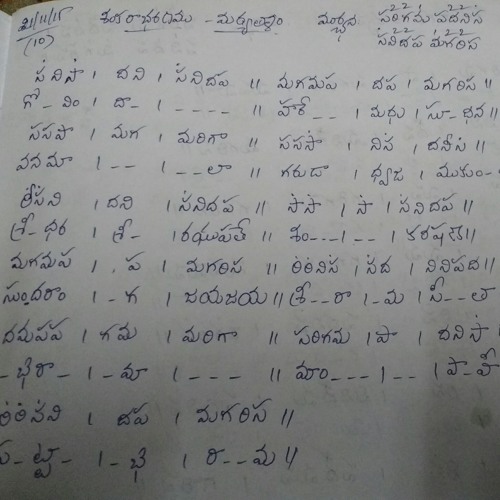 21/11/15 శంకరాభరణము - మఠ్యతాళం మూర్ఛన సరిగమ పదనిస
(10) సనిదప మగరిస
సనిసా । దని । సనిదప ॥ మగమప । దప । మగరిస
గో - విం । దా - । - - - - ॥ హరే - - । మధు । సూ - ధన ॥
ససపా । మగ । మరిగా ॥ ససపా । నిస । దనీస ॥
వనమా । - - । - - లా ॥ గరుడా । ధ్వజ । ముకుం -
రీసని । దని । సనిదప ॥ సాసా । సా । సనిదప ॥
శ్రీ - ధర । శ్రీ - । రఘుపతే ॥ శం - - - । - - ।
మగమప । , ప । మగరిస ॥ రిరినిస । సద । నినిపద ॥
సుందరాం । - గ । జయజయ ॥ శ్రీ - - రా । - మ । సీ - - తా
దమపప । గమ । మరిగా ॥ సరిగమ । పా । దనిసా
- - మా । - - - - ॥ మాం - - - । - - । పా - హీ
రిరిసని । దప । మగరిస ॥
- ట్టా - । - భి । రా - - మ ॥